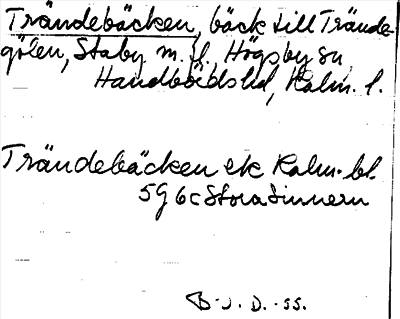 Trändebäcken, bäck till Trände-
gölen, Staby m. fl., Högsby sn,
Handbörds hd, Kalm. l.
Trändebäcken ek Kalm. bl.
5G 6c Stora Sinnern
B-J. D. -55.